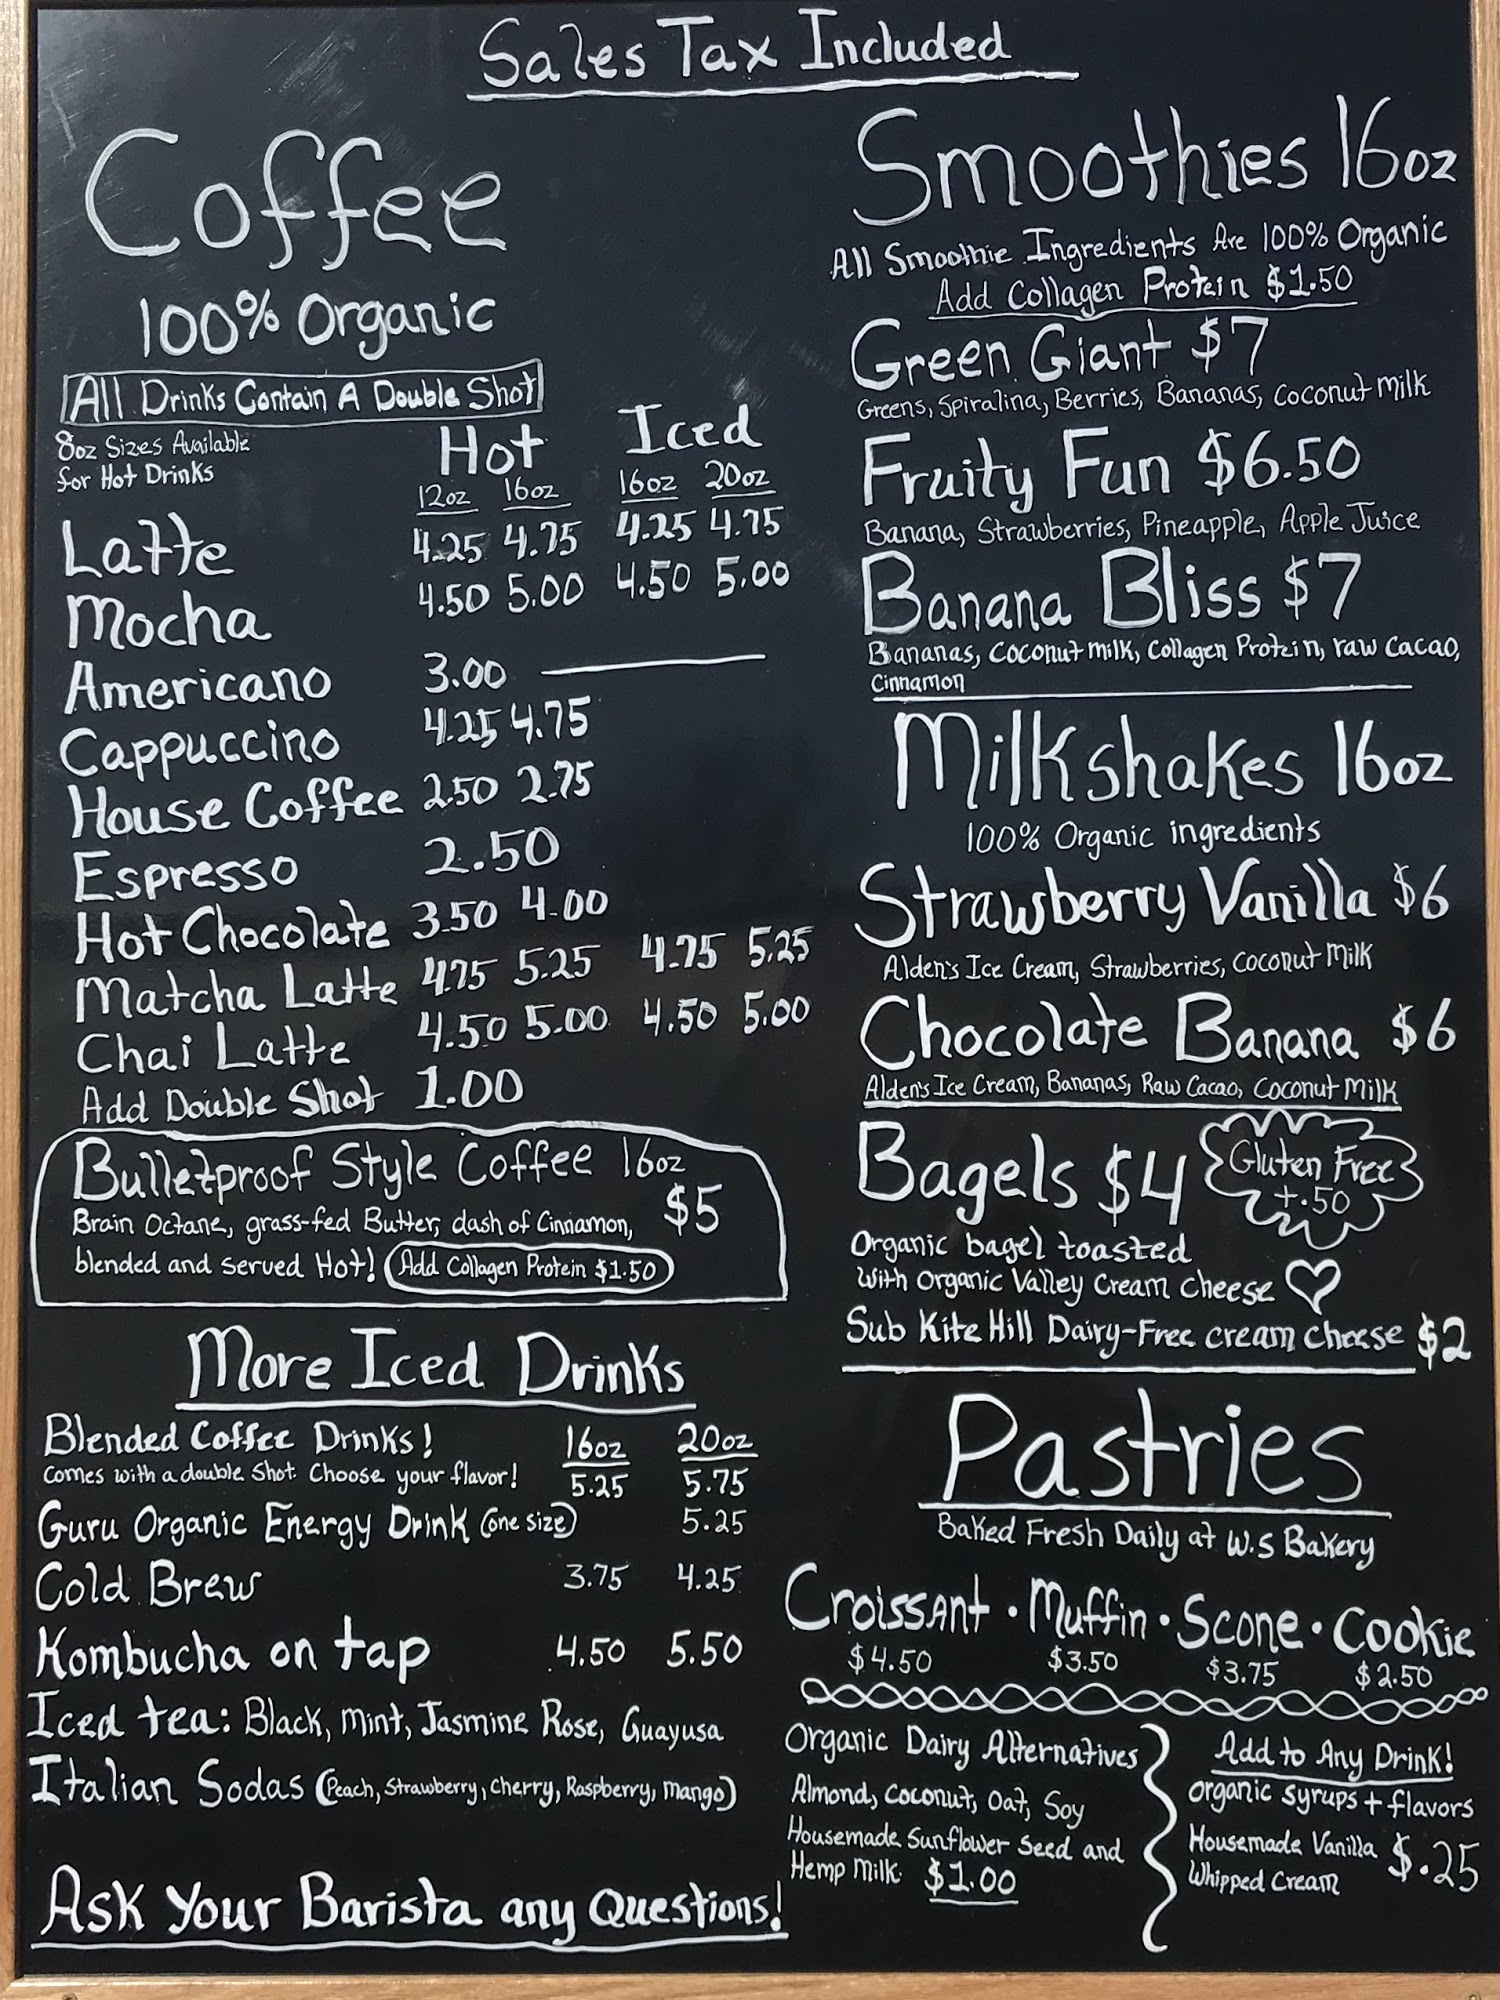 Sales Tax Included
Coffee
100% Organic
All Drinks Contain A Double Shot
8oz Sizes Available
for Hot Drinks
Hot Iced
12oz 16oz 16oz 20oz
Latte 4.25 4.75 4.25 4.75
Mocha 4.50 5.00 4.50 5.00
Americano 3.00
Cappuccino 4.25 4.75
House Coffee 2.50 2.75
Espresso 2.50
Hot Chocolate 3.50 4.00
Matcha Latte 4.75 5.25 4.75 5.25
Chai Latte 4.50 5.00 4.50 5.00
Add Double Shot 1.00
Bulletproof Style Coffee 16oz
$5
Brain Octane, grass-fed Butter, dash of Cinnamon,
blended and served Hot! Add Collagen Protein $1.50
More Iced Drinks
Blended Coffee Drinks! 16oz 20oz
Comes with a double shot. Choose your flavor! 5.25 5.75
Guru Organic Energy Drink (one size) 5.25
Cold Brew 3.75 4.25
Kombucha on tap 4.50 5.50
Iced tea: Black, Mint, Jasmine Rose, Guayusa
Italian Sodas (Peach, Strawberry, Cherry, Raspberry, Mango)
Ask Your Barista any Questions!
Smoothies 16oz
All Smoothie Ingredients Are 100% Organic
Add Collagen Protein $1.50
Green Giant $7
Greens, Spiralina, Berries, Bananas, Coconut Milk
Fruity Fun $6.50
Banana, Strawberries, Pineapple, Apple Juice
Banana Bliss $7
Bananas, Coconut milk, Collagen Protein, raw Cacao,
Cinnamon
Milkshakes 16oz
100% Organic ingredients
Strawberry Vanilla $6
Alden's Ice Cream, Strawberries, Coconut Milk
Chocolate Banana $6
Alden's Ice Cream, Bananas, Raw Cacao, Coconut Milk
Bagels $4
Gluten Free
+.50
Organic bagel toasted
with Organic Valley Cream Cheese
Sub Kite Hill Dairy-Free cream cheese $2
Pastries
Baked Fresh Daily at W.S Bakery
Croissant · Muffin · Scone · Cookie
$4.50 $3.50 $3.75 $2.50
Organic Dairy Alternatives
Almond, Coconut, Oat, Soy
Housemade Sunflower Seed and
Hemp Milk. $1.00
Add to Any Drink!
organic syrups + flavors
Housemade Vanilla
Whipped Cream $.25